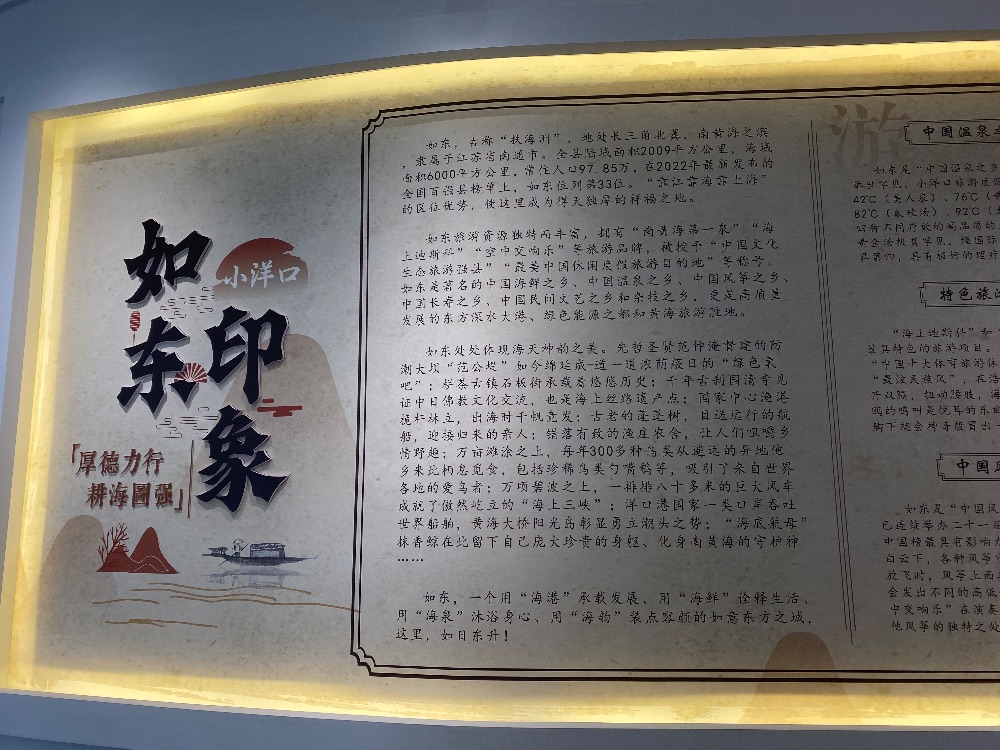 如东
印象
小洋口
「厚德力行
耕海圖强」
如东，古称“扶海洲”，地处长三角北翼，南黄海之滨
，隶属于江苏省南通市。全县陆域面积2009平方公里，海域
面积6000平方公里，常住人口97.85万，在2022年最新发布的
全国百强县榜单上，如东位列第33位。“靠江靠海靠上海”
的区位优势，使这里成为得天独厚的祥福之地。
如东旅游资源独特而丰富，拥有“南黄海第一泉”“海
上迪斯科”“空中交响乐”等旅游品牌，被授予“中国文化
生态旅游强县”“最美中国休闲度假旅游目的地”等称号。
如东是著名的中国海鲜之乡、中国温泉之乡、中国风筝之乡、
中国长寿之乡、中国民间文艺之乡和杂技之乡，更是高质量
发展的东方深水大港、绿色能源之都和黄海旅游胜地。
如东处处体现海天神韵之美。先哲圣贤范仲淹督建的防
潮大坝“范公堤”如今绵延成一道一道浓荫蔽日的“绿色氧
吧”；栟茶古镇石板街承载着悠悠历史；千年古刹国清寺见
证中日佛教文化交流，也是海上丝路遗产点；国家中心渔港
桅杆林立，出海时千帆竞发；古老的蓬蓬树，目送远行的航
船，迎接归来的亲人；错落有致的渔庄农舍，让人们咀嚼乡
情野趣；万亩滩涂之上，每年300多种鸟类从遥远的异地他
乡来此栖息觅食，包括珍稀鸟类勺嘴鹬等，吸引了来自世界
各地的爱鸟者；万顷碧波之上，一排排八十多米的巨大风车
成就了傲然屹立的“海上三峡”；洋口港国家一类口岸吞吐
世界船舶，黄海大桥阳光岛彰显勇立潮头之势；“海底航母”
抹香鲸在此留下自己庞大珍贵的身躯、化身南黄海的守护神
……
如东，一个用“海港”承载发展、用“海鲜”诠释生活、
用“海泉”沐浴身心、用“海韵”装点容颜的如意东方之城，
这里，如日东升！
游
中国温泉
如东是“中国温泉之乡
42℃（美人泉）、76℃
82℃ 、92℃
特色旅游
“海上迪斯科”
最具特色的旅游项目。
“中国十大体育旅游休
“最炫民族风”，在浩
开双脚，扭动腰肢，海
鸥的鸣叫是悦耳的乐
脚下就会神奇般冒出
中国风
如东是“中国风
已连续举办二十一届
中国榜最具有影响力
白云下，各种风筝
放飞时，风筝上面
会发出不同的高低
中交响乐”在演奏
地风筝的独特之处